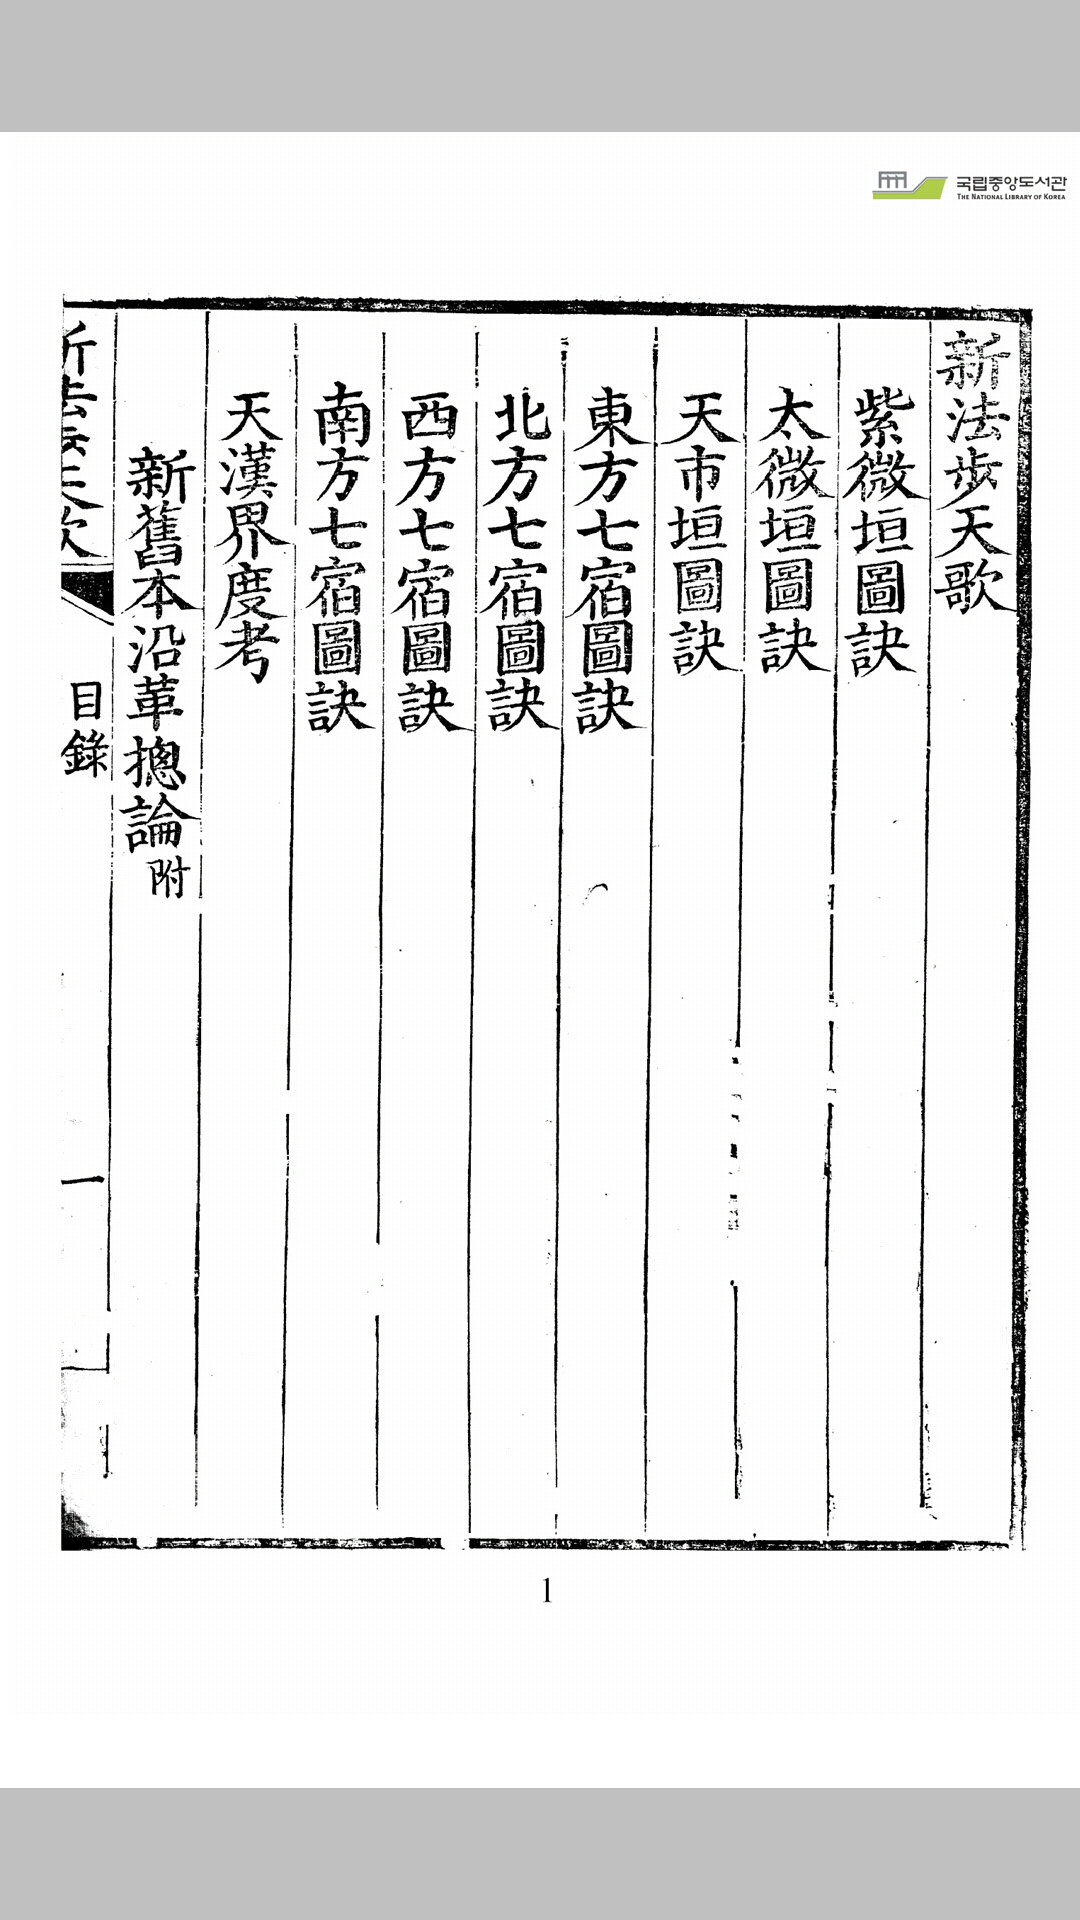 국립중앙도서관
THE NATIONAL LIBRARY OF KOREA
新法步天歌
紫微垣圖訣
太微垣圖訣
天市垣圖訣
東方七宿圖訣
北方七宿圖訣
西方七宿圖訣
南方七宿圖訣
天漢界度考
新舊本沿革摠論附
新法步天歌
目錄
一
1